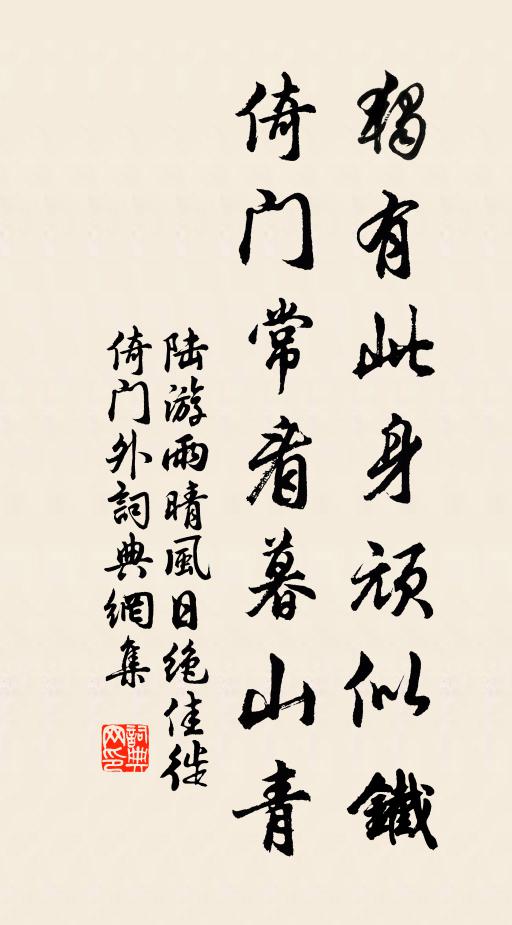 獨有此身頑似鐵
倚门常看暮山青
陆游雨晴風日绝佳徙
倚门外詞典網集
詞典
网印